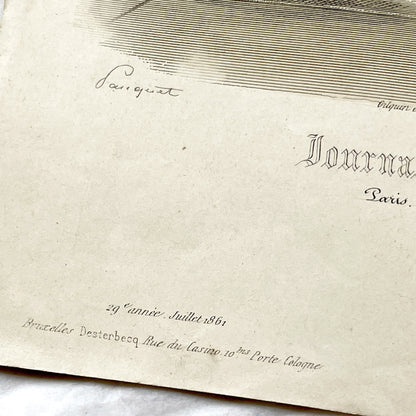 Pauquet
Gilquin
Journa
Paris.
29e année. Juillet 1861
Bruxelles Desterbecq Rue du Casino. 10bis Porte Cologne